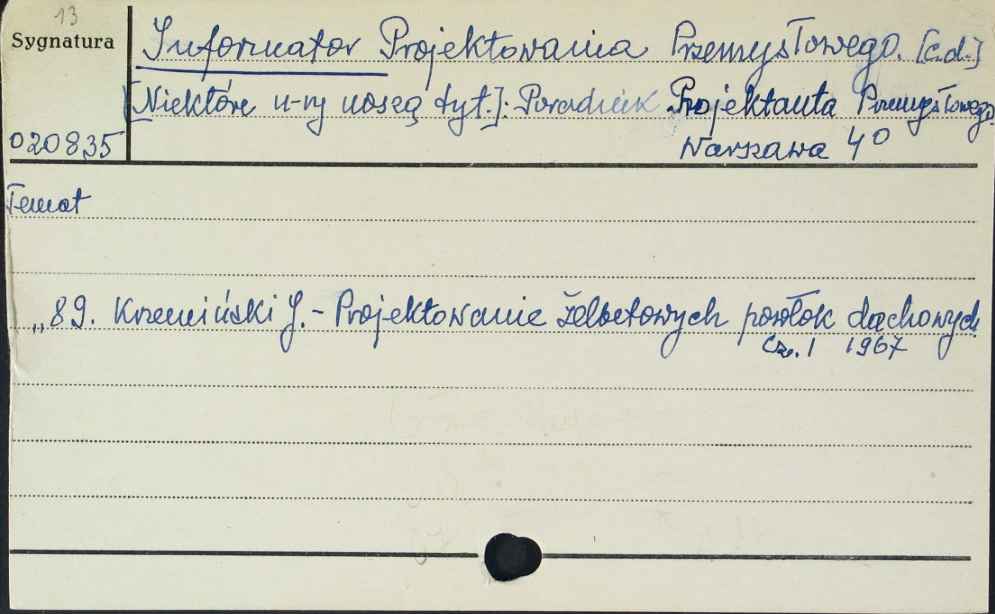 13
Sygnatura
Informator Projektowania Przemysłowego. [c.d.]
[Niektóre n-ry noszą tyt.]: Poradnik Projektanta Przemysłowego
020835
Warszawa 40
Temat
„89. Krzemiński J. - Projektowanie żelbetowych powłok dachowych
Cz. I 1967